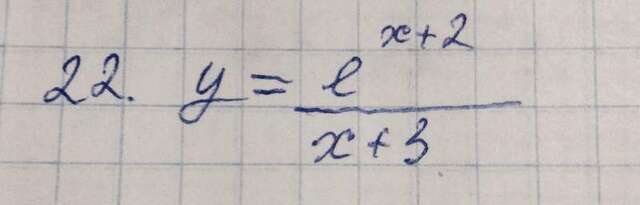 22. y = e^{x+2}
x+3